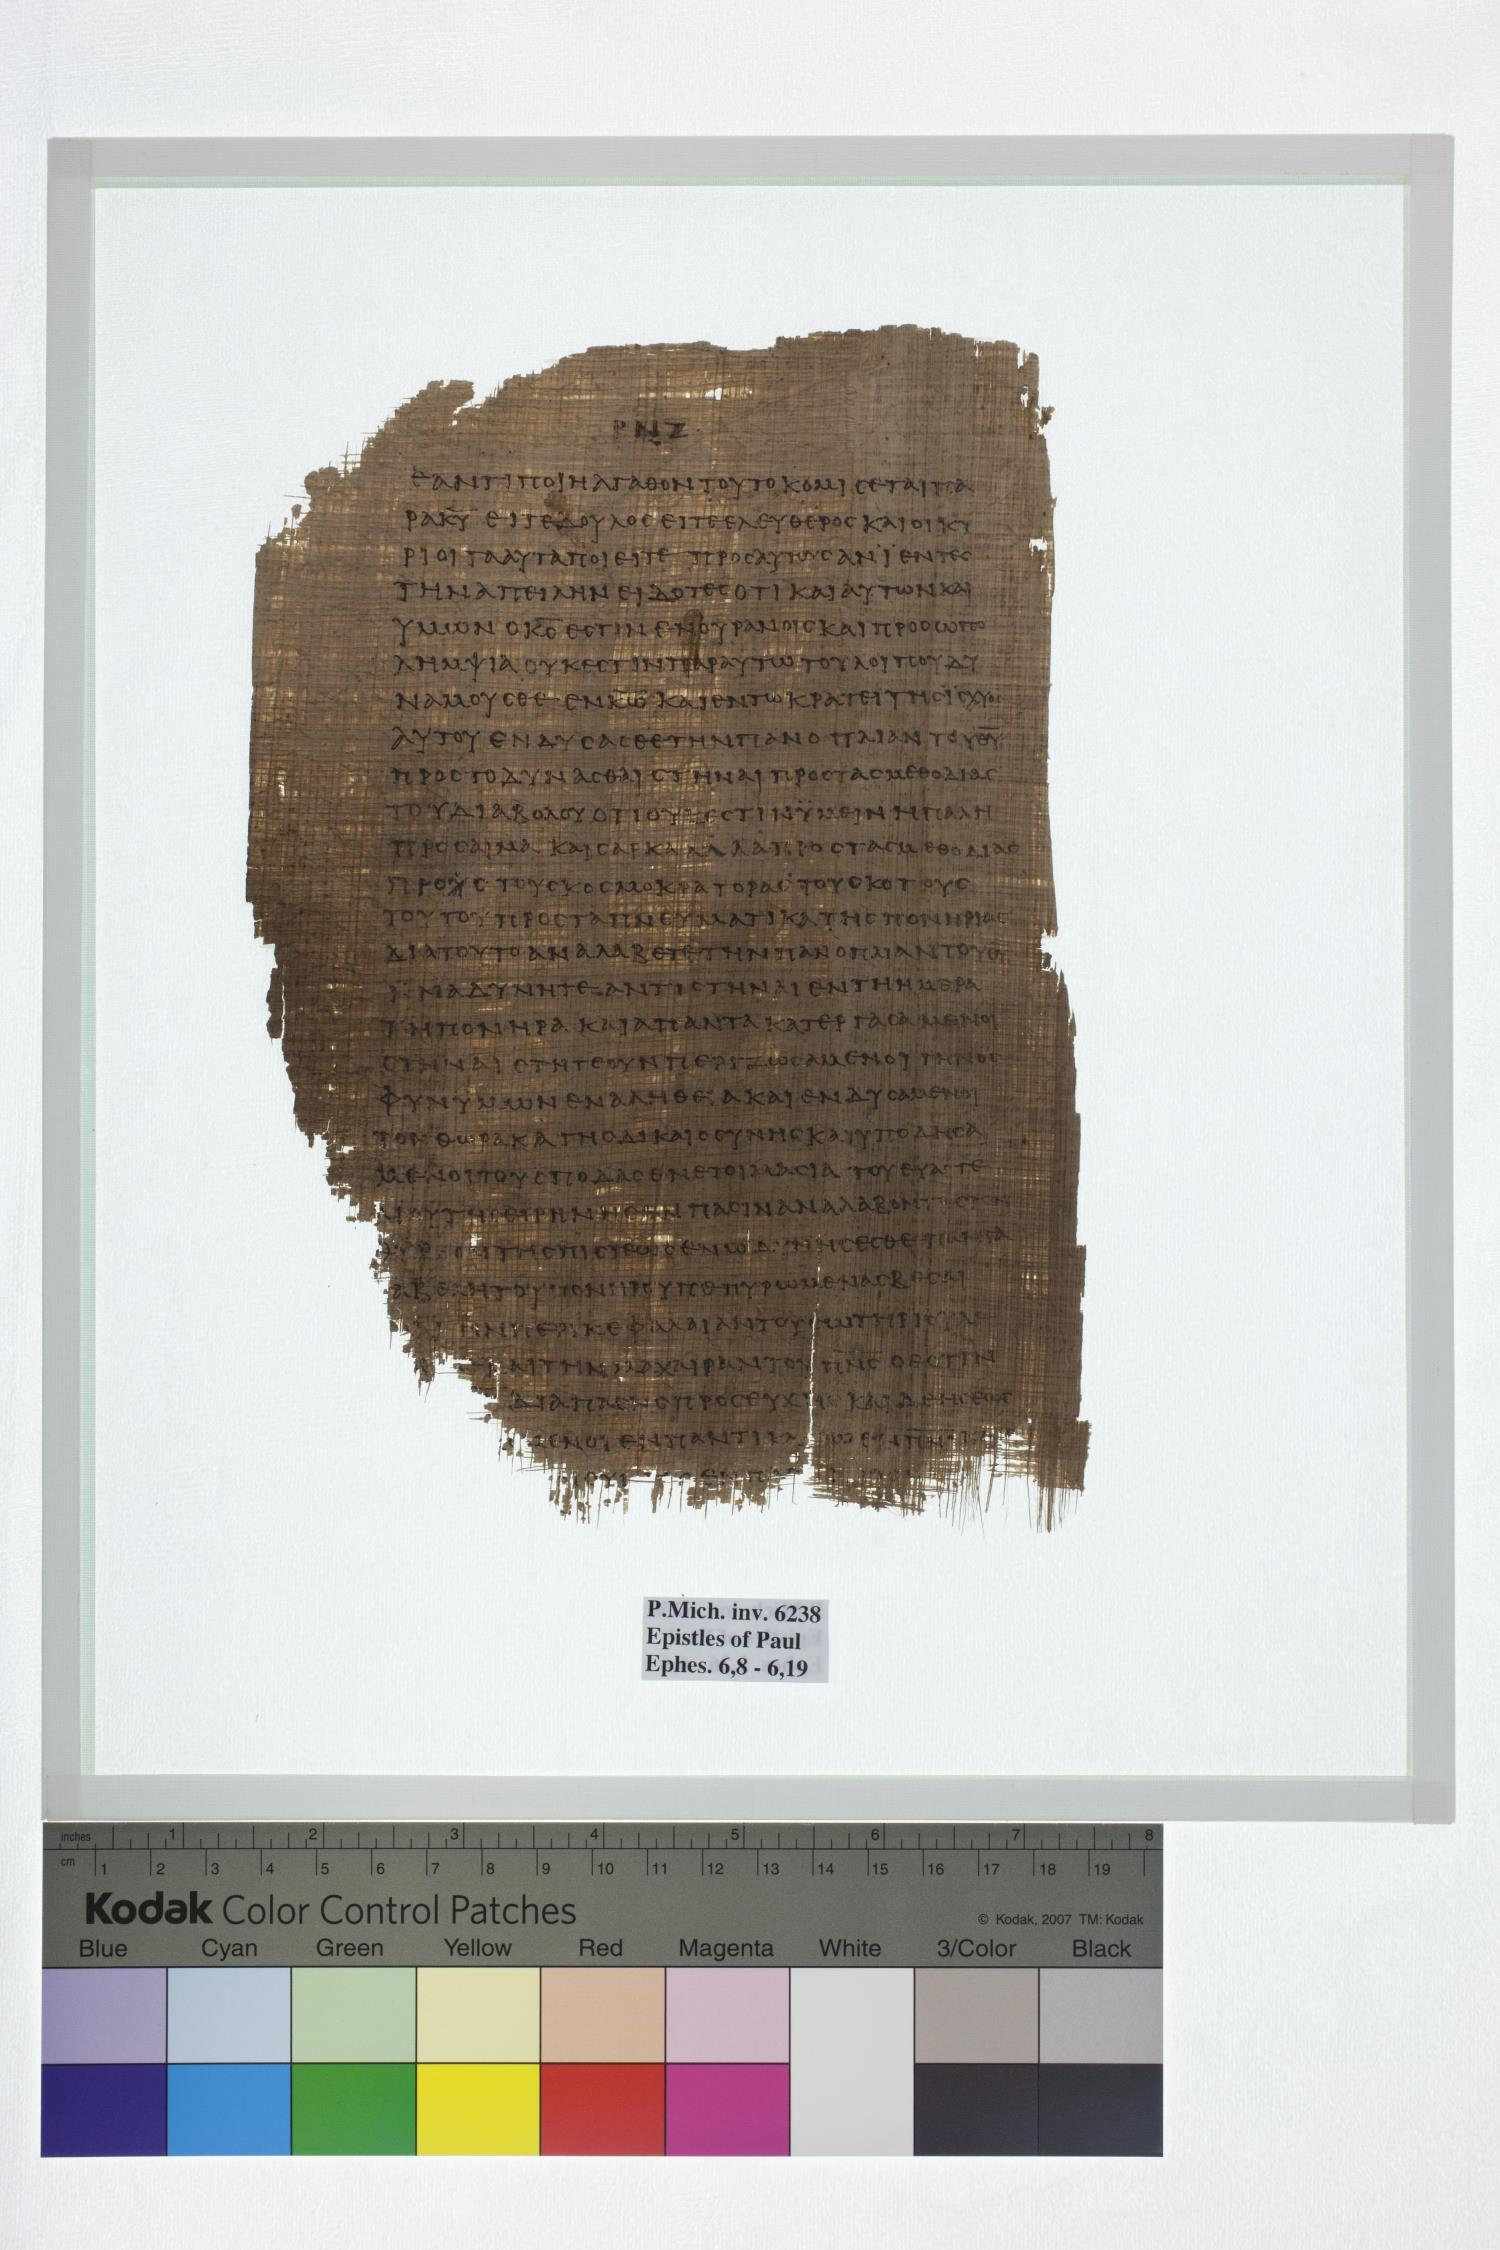 ΡΝΖ
ΕΑΝΤΙΠΟΙΗΑΓΑΘΟΝΤΟΥΤΟΚΟΜΙϹΕΤΑΙΠΑ
ΡΑΚΥ ΕΙΤΕΔΟΥΛΟϹΕΙΤΕΕΛΕΥΘΕΡΟϹΚΑΙΟΙΚΥ
ΡΙΟΙΤΑΑΥΤΑΠΟΙΕΙΤΕ ΠΡΟϹΑΥΤΟΥϹΑΝΙΕΝΤΕϹ
ΤΗΝΑΠΕΙΛΗΝΕΙΔΟΤΕϹΟΤΙΚΑΙΑΥΤΩΝΚΑΙ
ΥΜΩΝΟΚϹΕϹΤΙΝΕΝΟΥΡΑΝΟΙϹΚΑΙΠΡΟϹΩΠΟ
ΛΗΜΨΙΑΟΥΚΕϹΤΙΝΠΑΡΑΥΤΩΤΟΥΛΟΙΠΟΥΔΥ
ΝΑΜΟΥϹΘΕΕΝΚΩΚΑΙΕΝΤΩΚΡΑΤΕΙΤΗϹΙϹΧΥΟϹ
ΑΥΤΟΥΕΝΔΥϹΑϹΘΕΤΗΝΠΑΝΟΠΛΙΑΝΤΟΥΘΥ
ΠΡΟϹΤΟΔΥΝΑϹΘΑΙϹΤΗΝΑΙΠΡΟϹΤΑϹΜΕΘΟΔΙΑϹ
ΤΟΥΔΙΑΒΟΛΟΥΟΤΙΟΥΚΕϹΤΙΝΫΜΕΙΝΗΠΑΛΗ
ΠΡΟϹΑΙΜΑΚΑΙϹΑΡΚΑΑΛΛΑΠΡΟϹΤΑϹΜΕΘΟΔΙΑϹ
ΠΡΟϹΤΟΥϹΚΟϹΜΟΚΡΑΤΟΡΑϹΤΟΥϹΚΟΤΟΥϹ
ΤΟΥΤΟΥΠΡΟϹΤΑΠΝΕΥΜΑΤΙΚΑΤΗϹΠΟΝΗΡΙΑϹ
ΔΙΑΤΟΥΤΟΑΝΑΛΑΒΕΤΕΤΗΝΠΑΝΟΠΛΙΑΝΤΟΥΘΥ
ΙΝΑΔΥΝΗΤΕΑΝΤΙϹΤΗΝΑΙΕΝΤΗΗΜΕΡΑ
ΤΗΠΟΝΗΡΑΚΑΙΑΠΑΝΤΑΚΑΤΕΡΓΑϹΑΜΕΝΟΙ
ϹΤΗΝΑΙϹΤΗΤΕΟΥΝΠΕΡΙΖΩϹΑΜΕΝΟΙΤΗΝΟϹ
ΦΥΝΥΜΩΝΕΝΑΛΗΘΕΙΑΚΑΙΕΝΔΥϹΑΜΕΝΟΙ
ΤΟΝΘΩΡΑΚΑΤΗϹΔΙΚΑΙΟϹΥΝΗϹΚΑΙΥΠΟΔΗϹΑ
ΜΕΝΟΙΤΟΥϹΠΟΔΑϹΕΝΕΤΟΙΜΑϹΙΑΤΟΥΕΥΑΓΓΕ
ΛΙΟΥΤΗϹΕΙΡΗΝΗϹΕΝΠΑϹΙΝΑΝΑΛΑΒΟΝΤΕϹΤΟΝ
ΘΥΡΕΟΝΤΗϹΠΙϹΤΕΩϹΕΝΩΔΥΝΗϹΕϹΘΕΠΑΝΤΑ
ΤΑΒΕΛΗΤΟΥΠΟΝΗΡΟΥΠΕΠΥΡΩΜΕΝΑϹΒΕϹΑΙ
ΤΗΝΠΕΡΙΚΕΦΑΛΑΙΑΝΤΟΥϹΩΤΗΡΙΟΥ
ΚΑΙΤΗΝΜΑΧΑΙΡΑΝΤΟΥΠΝϹΟΕϹΤΙΝ
ΔΙΑΠΑϹΗϹΠΡΟϹΕΥΧΗϹΚΑΙΔΕΗϹΕΩϹ
ΜΕΝΟΙΕΝΠΑΝΤΙΚΑΙΡΩΕΝΠΝΙ
P.Mich. inv. 6238
Epistles of Paul
Ephes. 6,8 - 6,19
inches 1 2 3 4 5 6 7 8
cm 1 2 3 4 5 6 7 8 9 10 11 12 13 14 15 16 17 18 19
Kodak Color Control Patches
© Kodak, 2007 TM: Kodak
Blue Cyan Green Yellow Red Magenta White 3/Color Black